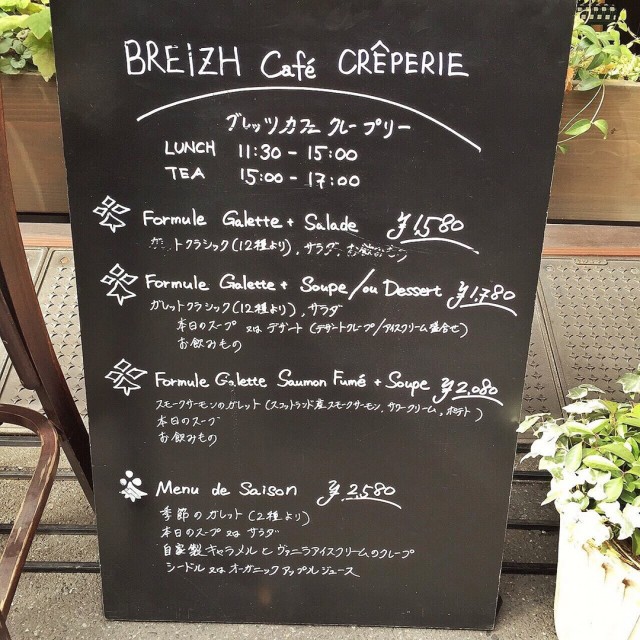 BREIZH Café CRÊPERIE
ブレッツカフェ クレープリー
LUNCH 11:30 - 15:00
TEA 15:00 - 17:00
Formule Galette + Salade ¥1,580
ガレットクラシック(12種より), サラダ, お飲みもの
Formule Galette + Soupe / ou Dessert ¥1,780
ガレットクラシック(12種より), サラダ
本日のスープ 又は デザート(デザートクレープ/アイスクリーム盛合せ)
お飲みもの
Formule Galette Saumon Fumé + Soupe ¥2,080
スモークサーモンのガレット(スコットランド産スモークサーモン, サワークリーム, ポテト)
本日のスープ
お飲みもの
Menu de Saison ¥2,580
季節のガレット(2種より)
本日のスープ 又は サラダ
自家製キャラメルとヴァニラアイスクリームのクレープ
シードル 又は オーガニックアップルジュース